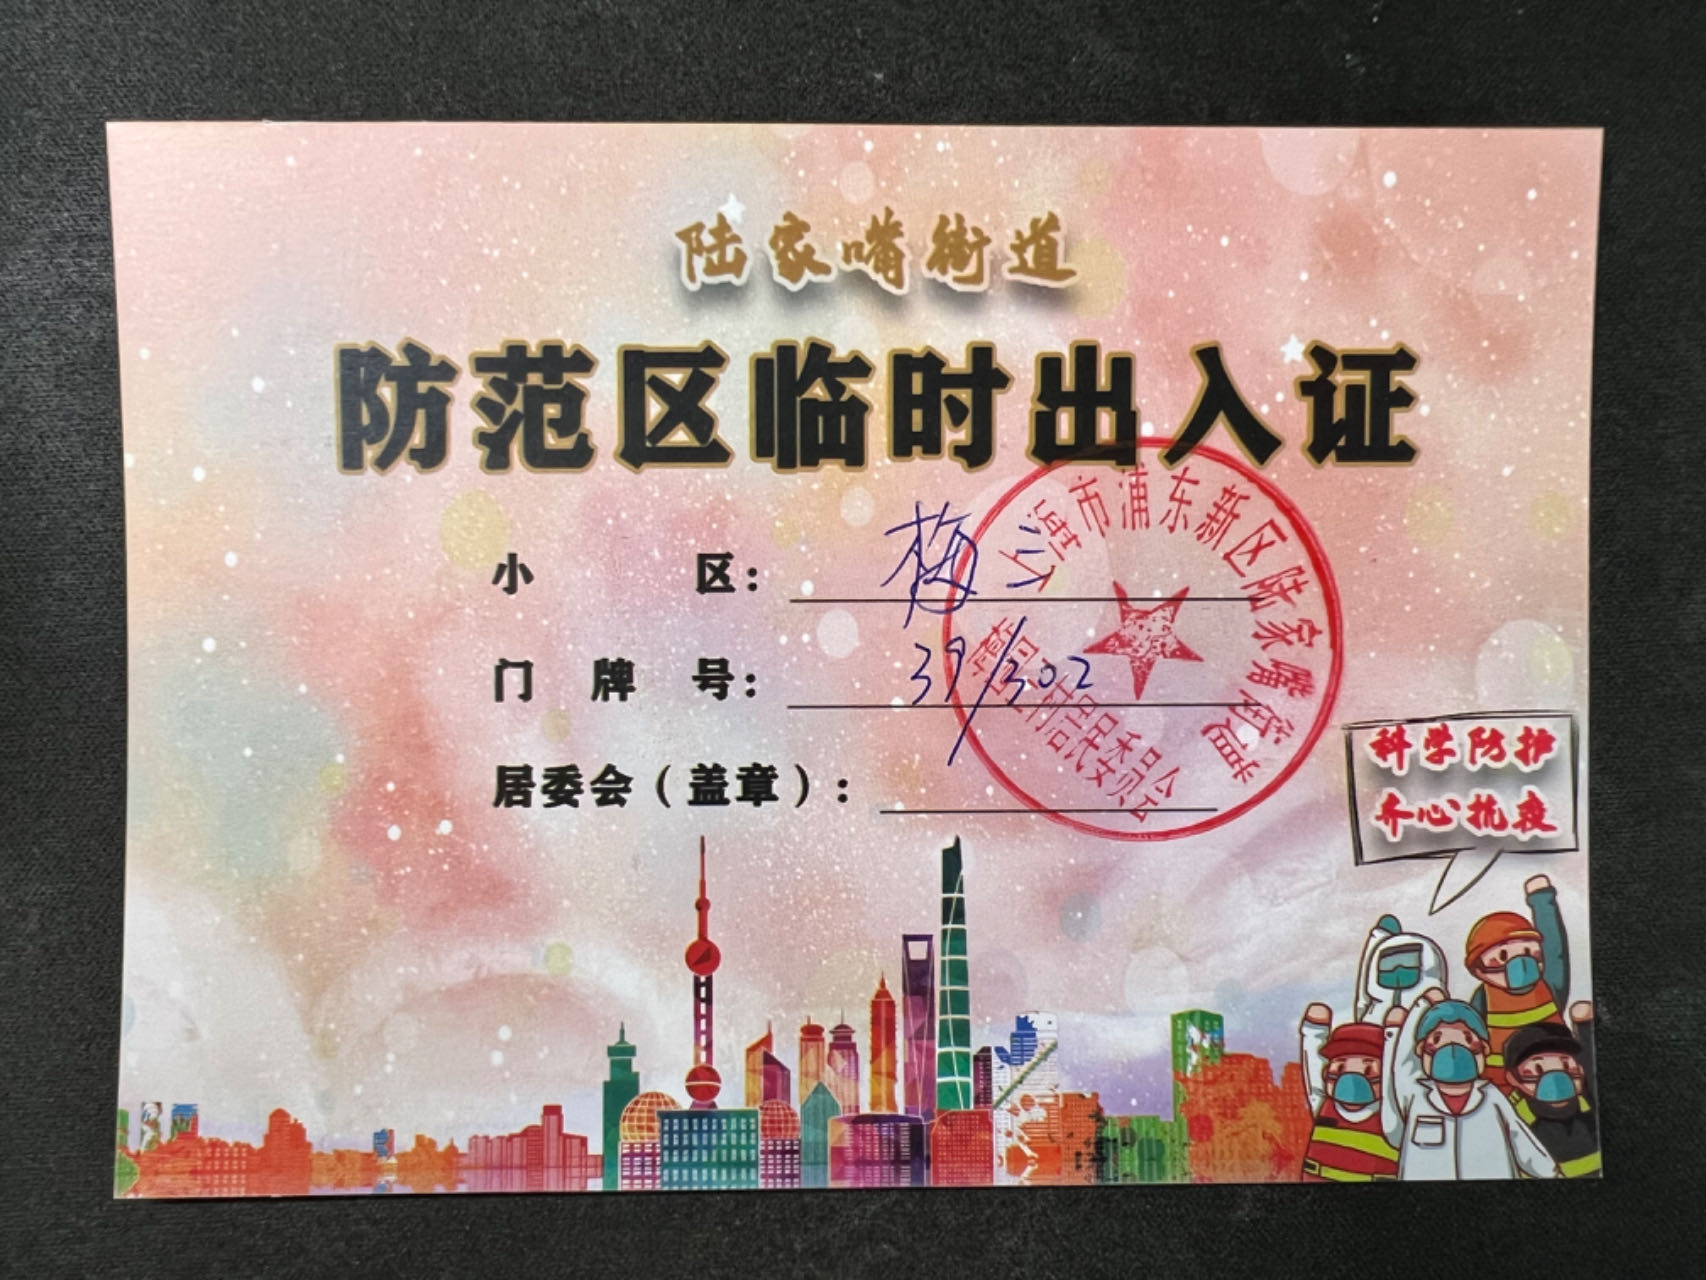 陆家嘴街道
防范区临时出入证
小 区： 梅
门 牌 号： 39/302
居委会（盖章）：
上海市浦东新区陆家嘴街道
居民委员会
科学防护
齐心抗疫